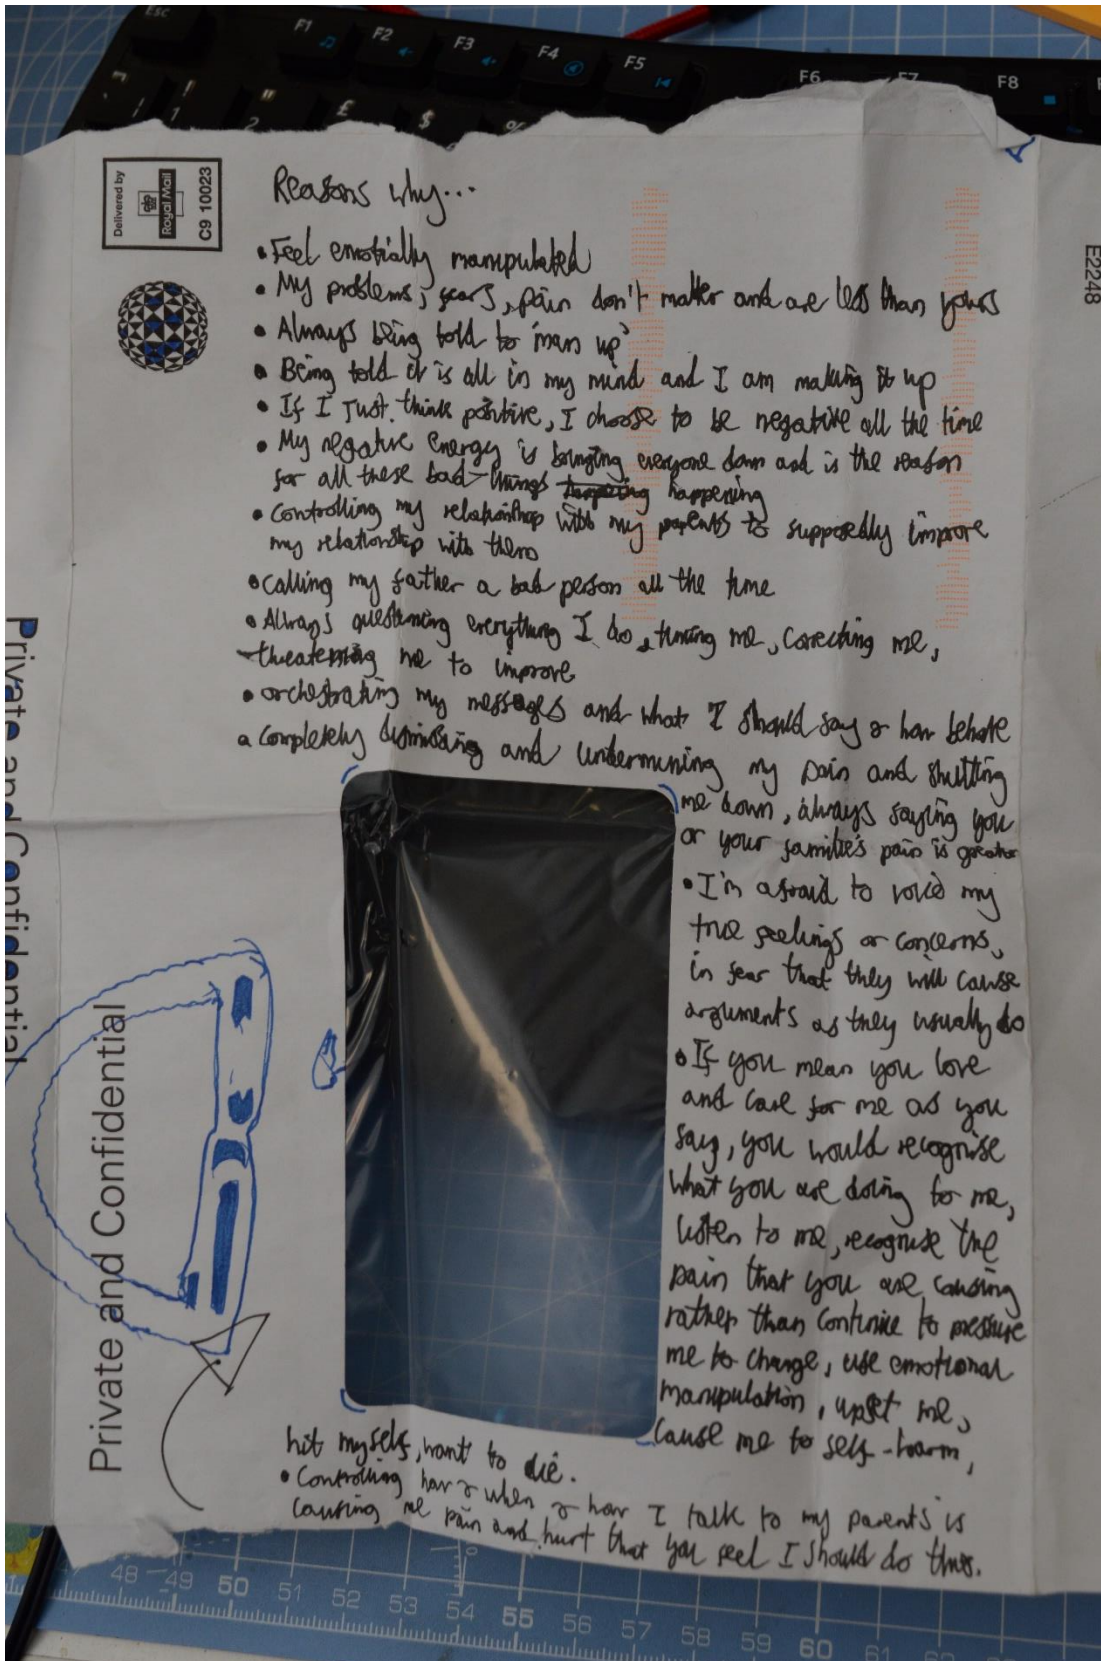 Esc
F1
F2
F3
F4
F5
F6
F7
F8
!
1
"
2
£
$
%
Delivered by
Royal Mail
C9 10023
E2248
Reasons why...
• Feel emotially manipulated
• My problems, fears, pain don't matter and are less than yours
• Always being told to 'man up'
• Being told it is all in my mind and I am making it up
• If I Just think positive, I choose to be negative all the time
• My negative energy is bringing everyone down and is the reason
for all these bad things happening
• Controlling my relationship with my parents to supposedly improve
my relationship with them
• Calling my father a bad person all the time
• Always questioning everything I do, timing me, correcting me,
threatening me to improve
• orchestrating my messages and what I should say & how behave
• Completely dismissing and undermining my pain and shutting
me down, always saying you
or your families pain is greater
• I'm afraid to voice my
true feelings or concerns,
in fear that they will cause
arguments as they usually do
• If you mean you love
and care for me as you
say, you would recognise
what you are doing to me,
listen to me, recognise the
pain that you are causing
rather than continue to pressure
me to change, use emotional
manipulation, upset me,
cause me to self-harm,
hit myself, want to die.
• Controlling how & when & how I talk to my parents is
causing me pain and hurt that you feel I should do this.
Private and Confidential
Private and Confidential
48 49 50 51 52 53 54 55 56 57 58 59 60 61 62